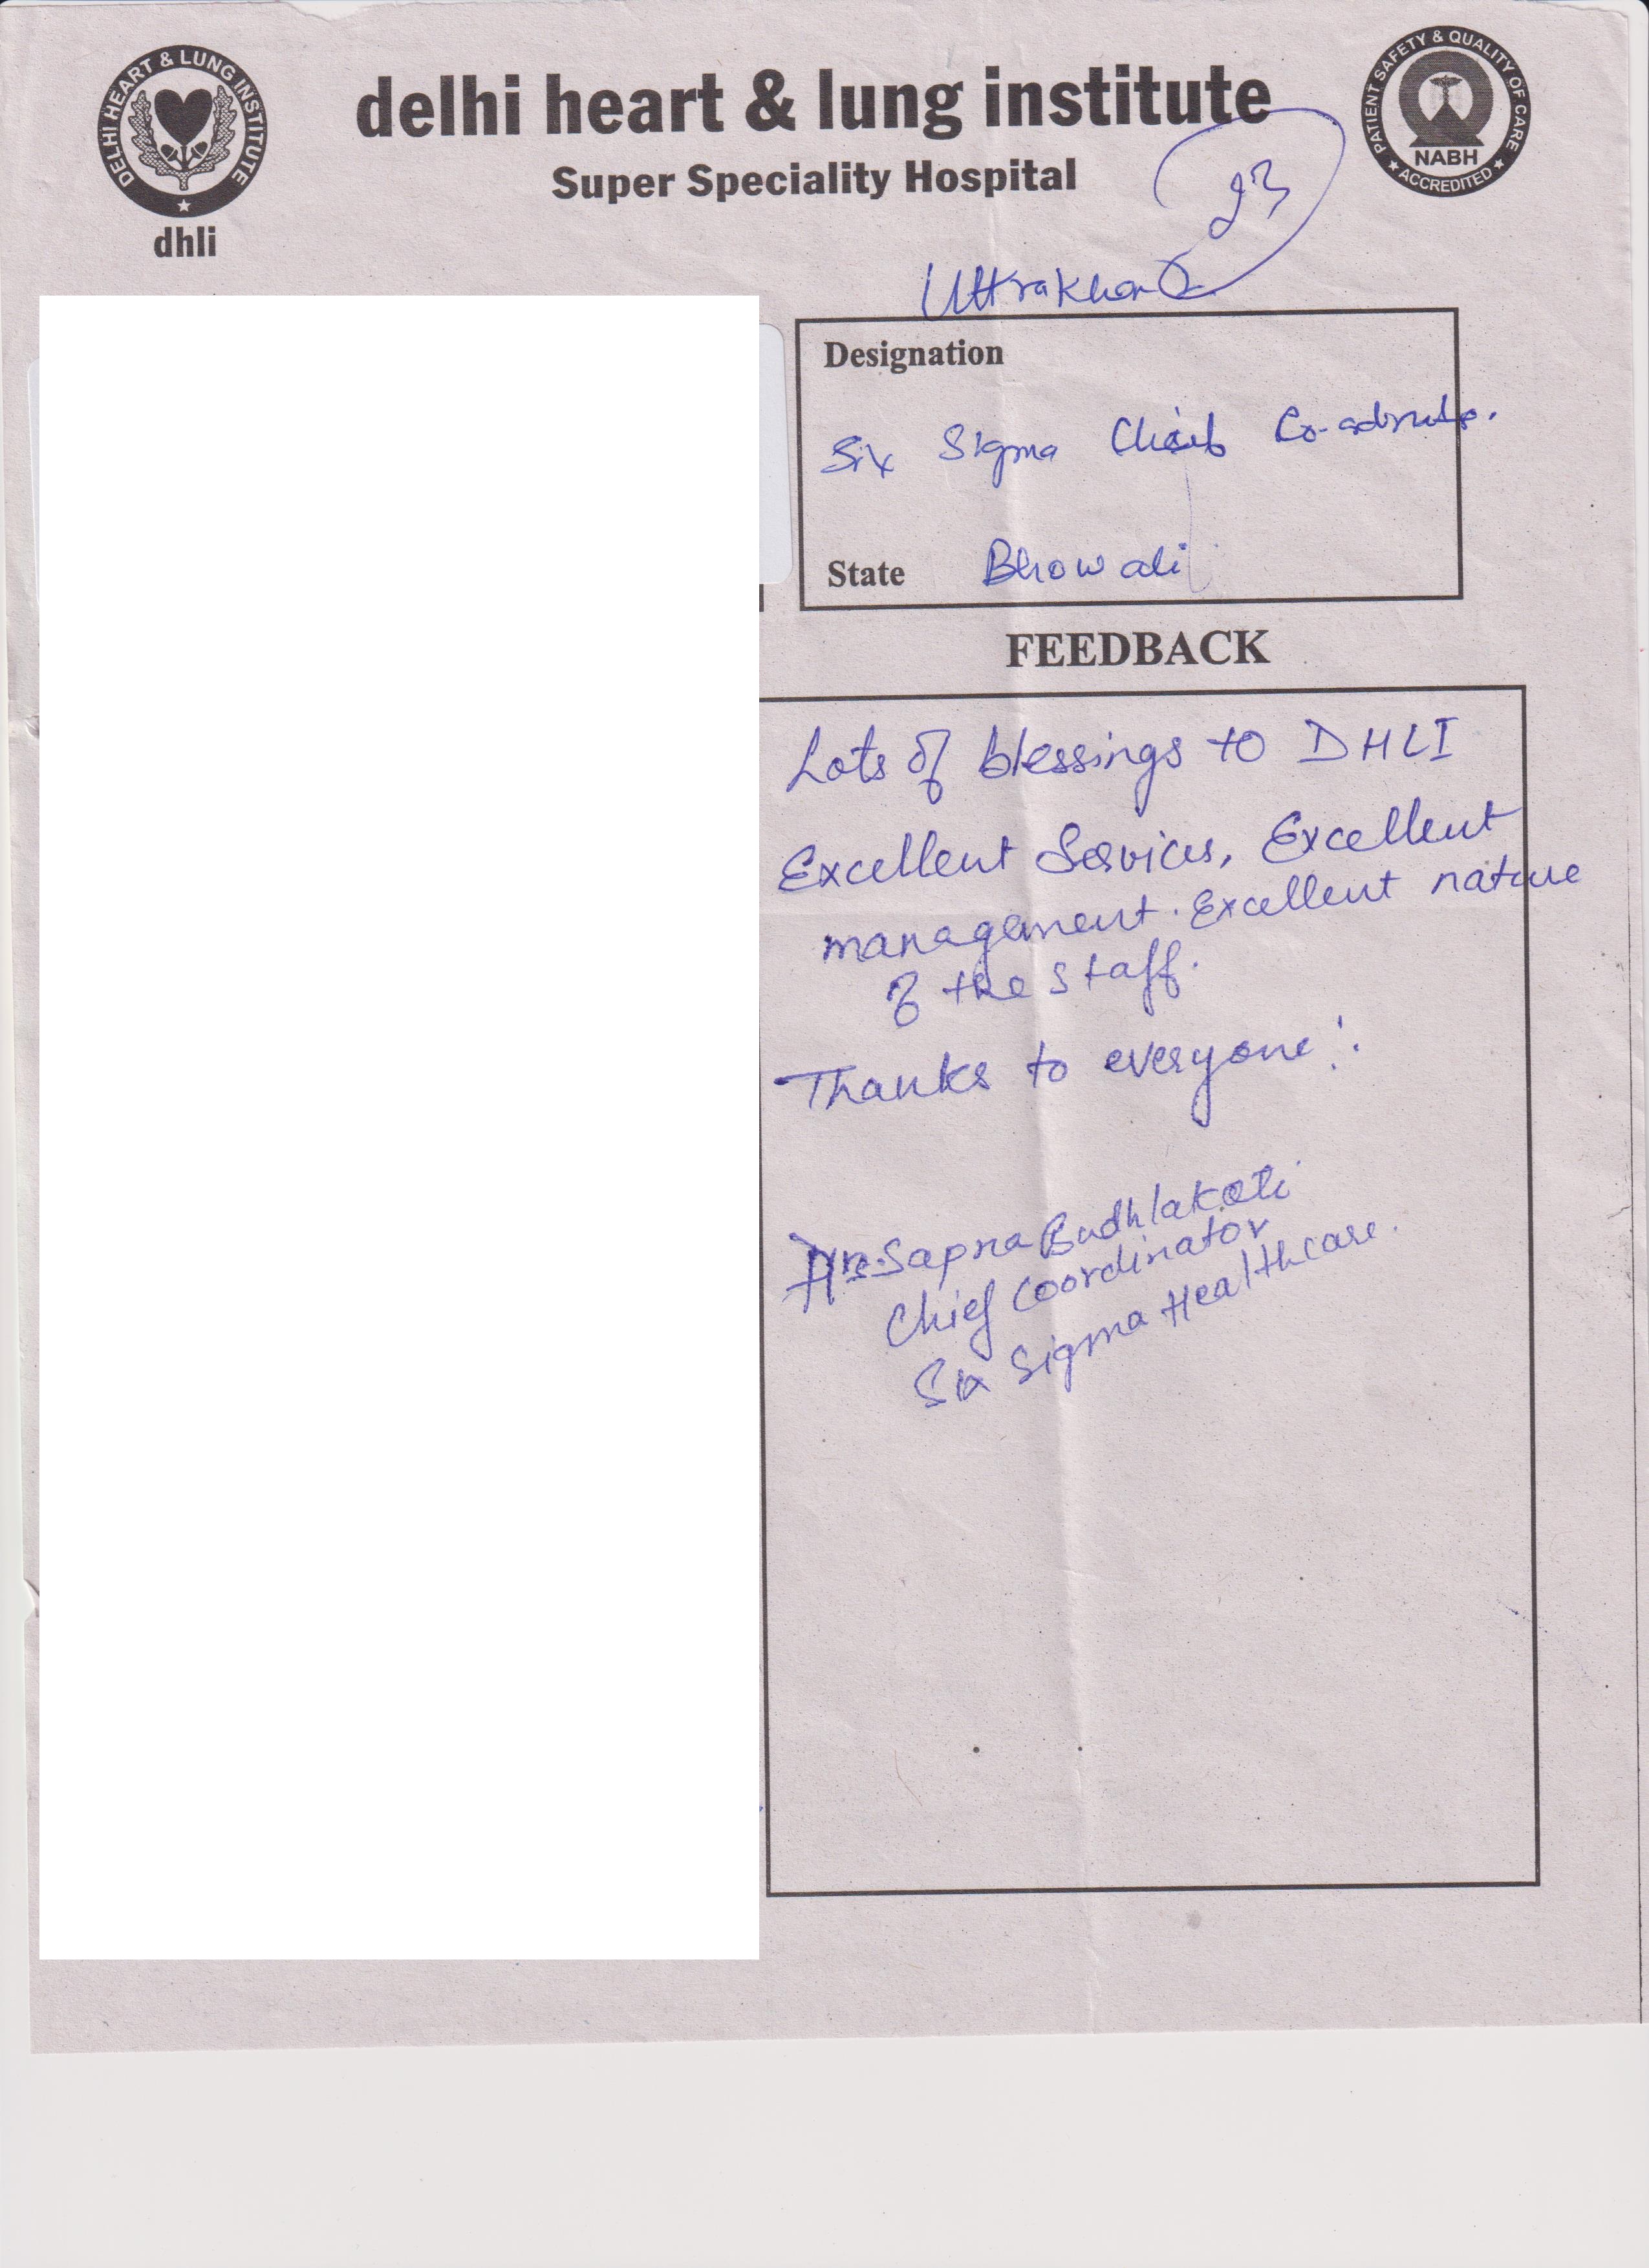 DELHI HEART & LUNG INSTITUTE
dhli
delhi heart & lung institute
Super Speciality Hospital
PATIENT SAFETY & QUALITY OF CARE
NABH
ACCREDITED
23
Uttrakhand
Designation
Six Sigma Chief
State Bhowali
FEEDBACK
Lots of blessings to DHLI
Excellent Services, Excellent
management. Excellent nature
of the staff.
Thanks to everyone!
Sapna Budhlakoti
Chief Coordinator
Six Sigma Healthcare.